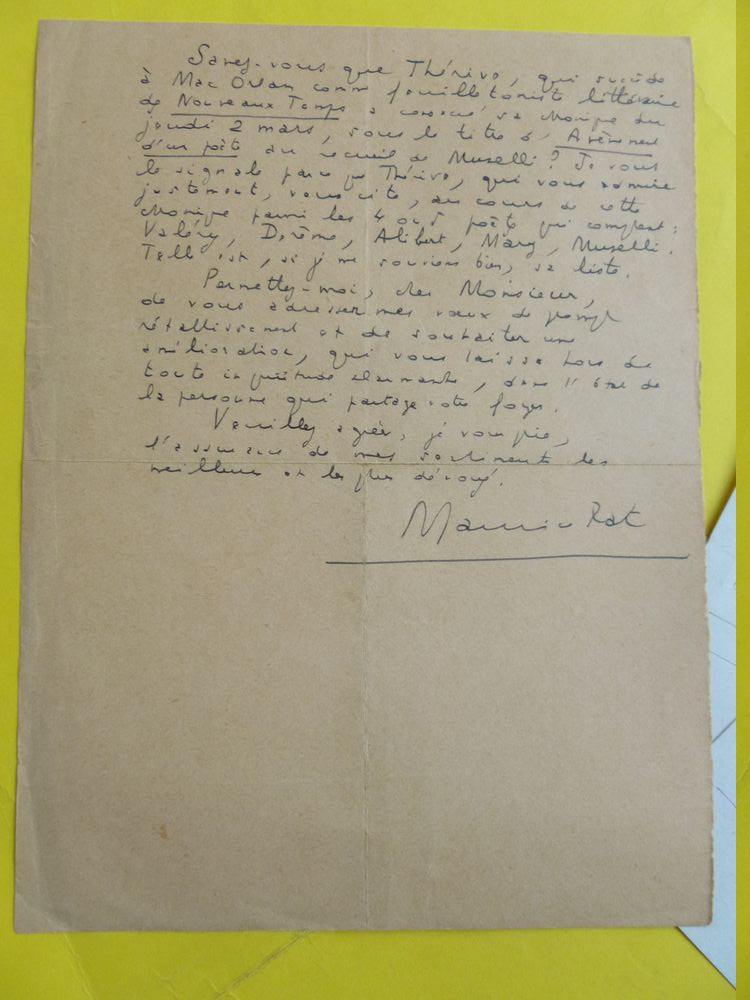 Savez-vous que Thérive, qui succède
à Mac Orlan comme feuilletoniste littéraire
de Nouveaux Temps a consacré sa chronique du
jeudi 2 mars, sous le titre d'Avènement
d'un poète au recueil de Muselli ? Je vous
le signale parce que Thérive, qui vous admire
justement, vous cite, au cours de cette
chronique parmi les 4 ou 5 poètes qui comptent :
Valéry, Derême, Alibert, Mary, Muselli.
Telle est, si je me souviens bien, sa liste.
Permettez-moi, cher Monsieur,
de vous adresser mes vœux de prompt
rétablissement et de souhaiter une
amélioration, qui vous laisse hors de
toute inquiétude alarmante, dans l'état de
la personne qui partage votre foyer.
Veuillez agréer, je vous prie,
l'assurance de mes sentiments les
meilleurs et les plus dévoués.
Maurice Rat